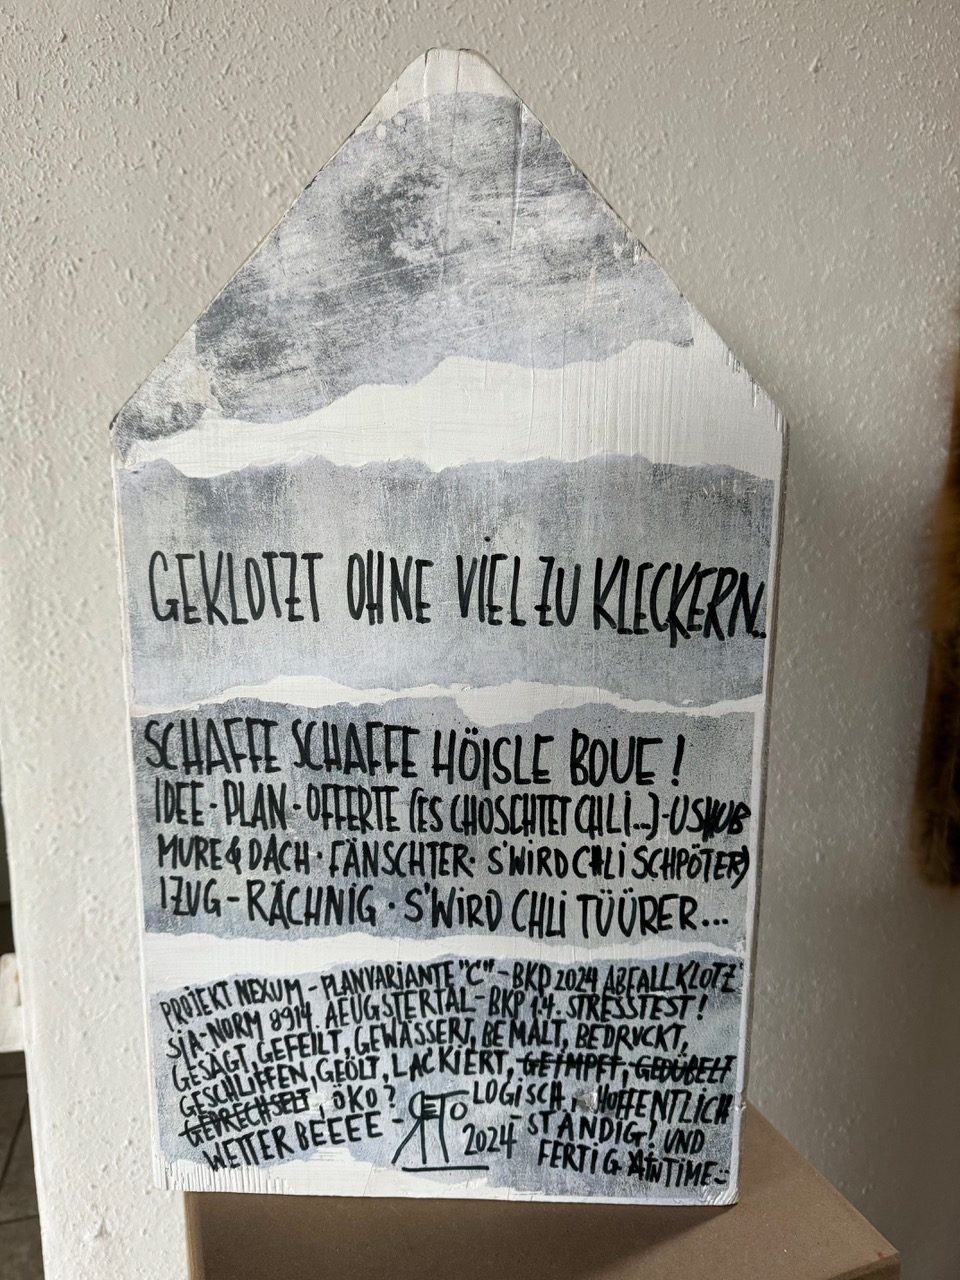 GEKLOTZT OHNE VIEL ZU KLECKERN..
SCHAFFE SCHAFFE HÖISLE BOUE!
IDEE - PLAN - OFFERTE (ES CHOSCHTET CHLI...) - USHUB
MURE & DACH · FÄNSCHTER · S'WIRD CHLI SCHPÖTER)
IZUG - RÄCHNIG · S'WIRD CHLI TÜÜRER...
PROJEKT NEXUM - PLANVARIANTE "C" - BKP 2024 ABFALLKLOTZ
SIA-NORM 8914. AEUGSTERTAL - BKP 1.4. STRESSTEST!
GESÄGT, GEFEILT, GEWÄSSERT, BEMALT, BEDRUCKT,
GESCHLIFFEN, GEÖLT, LACKIERT, GEIMPFT, GEDÜBELT
GEDRECHSELT, ÖKO? LOGISCH, HOFFENTLICH
WETTERBEEEE - 2024 - STÄNDIG! UND
FERTIG INTIME